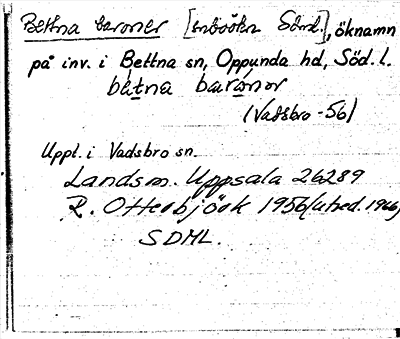 Bettna baroner [inböökn Sörd.], öknamn
på inv. i Bettna sn, Oppunda hd, Söd. l.
bätna barónor
(Vadsbro -56)
Uppl. i Vadsbro sn.
Landsm. Uppsala 26289
R. Otterbjörk 1956 (utred. 1966)
SDML.